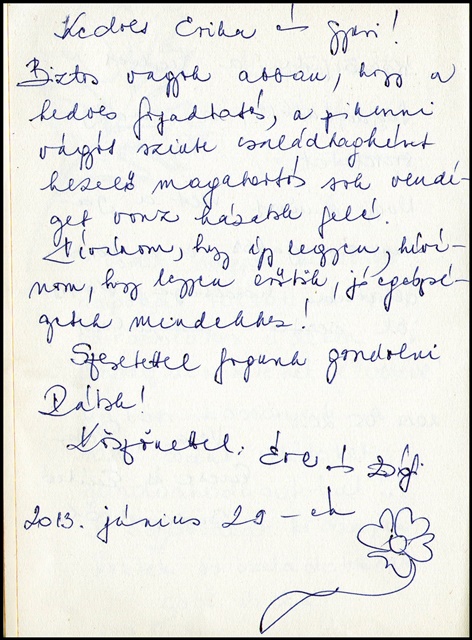 Kedves Erika és Gyuri!
Biztos vagyok abban, hogy a
kedves fogadtatás, a pihenni
vágyót szinte családtagként
kezelő magatartás sok vendé-
get vonz házatok felé.
Kívánom, hogy így legyen, kívá-
nom, hogy legyen erőtök, jó egészsé-
getek mindehhez!
Szeretettel fogunk gondolni
Rátok!
Köszönettel: Éva és
2013. június 29-én